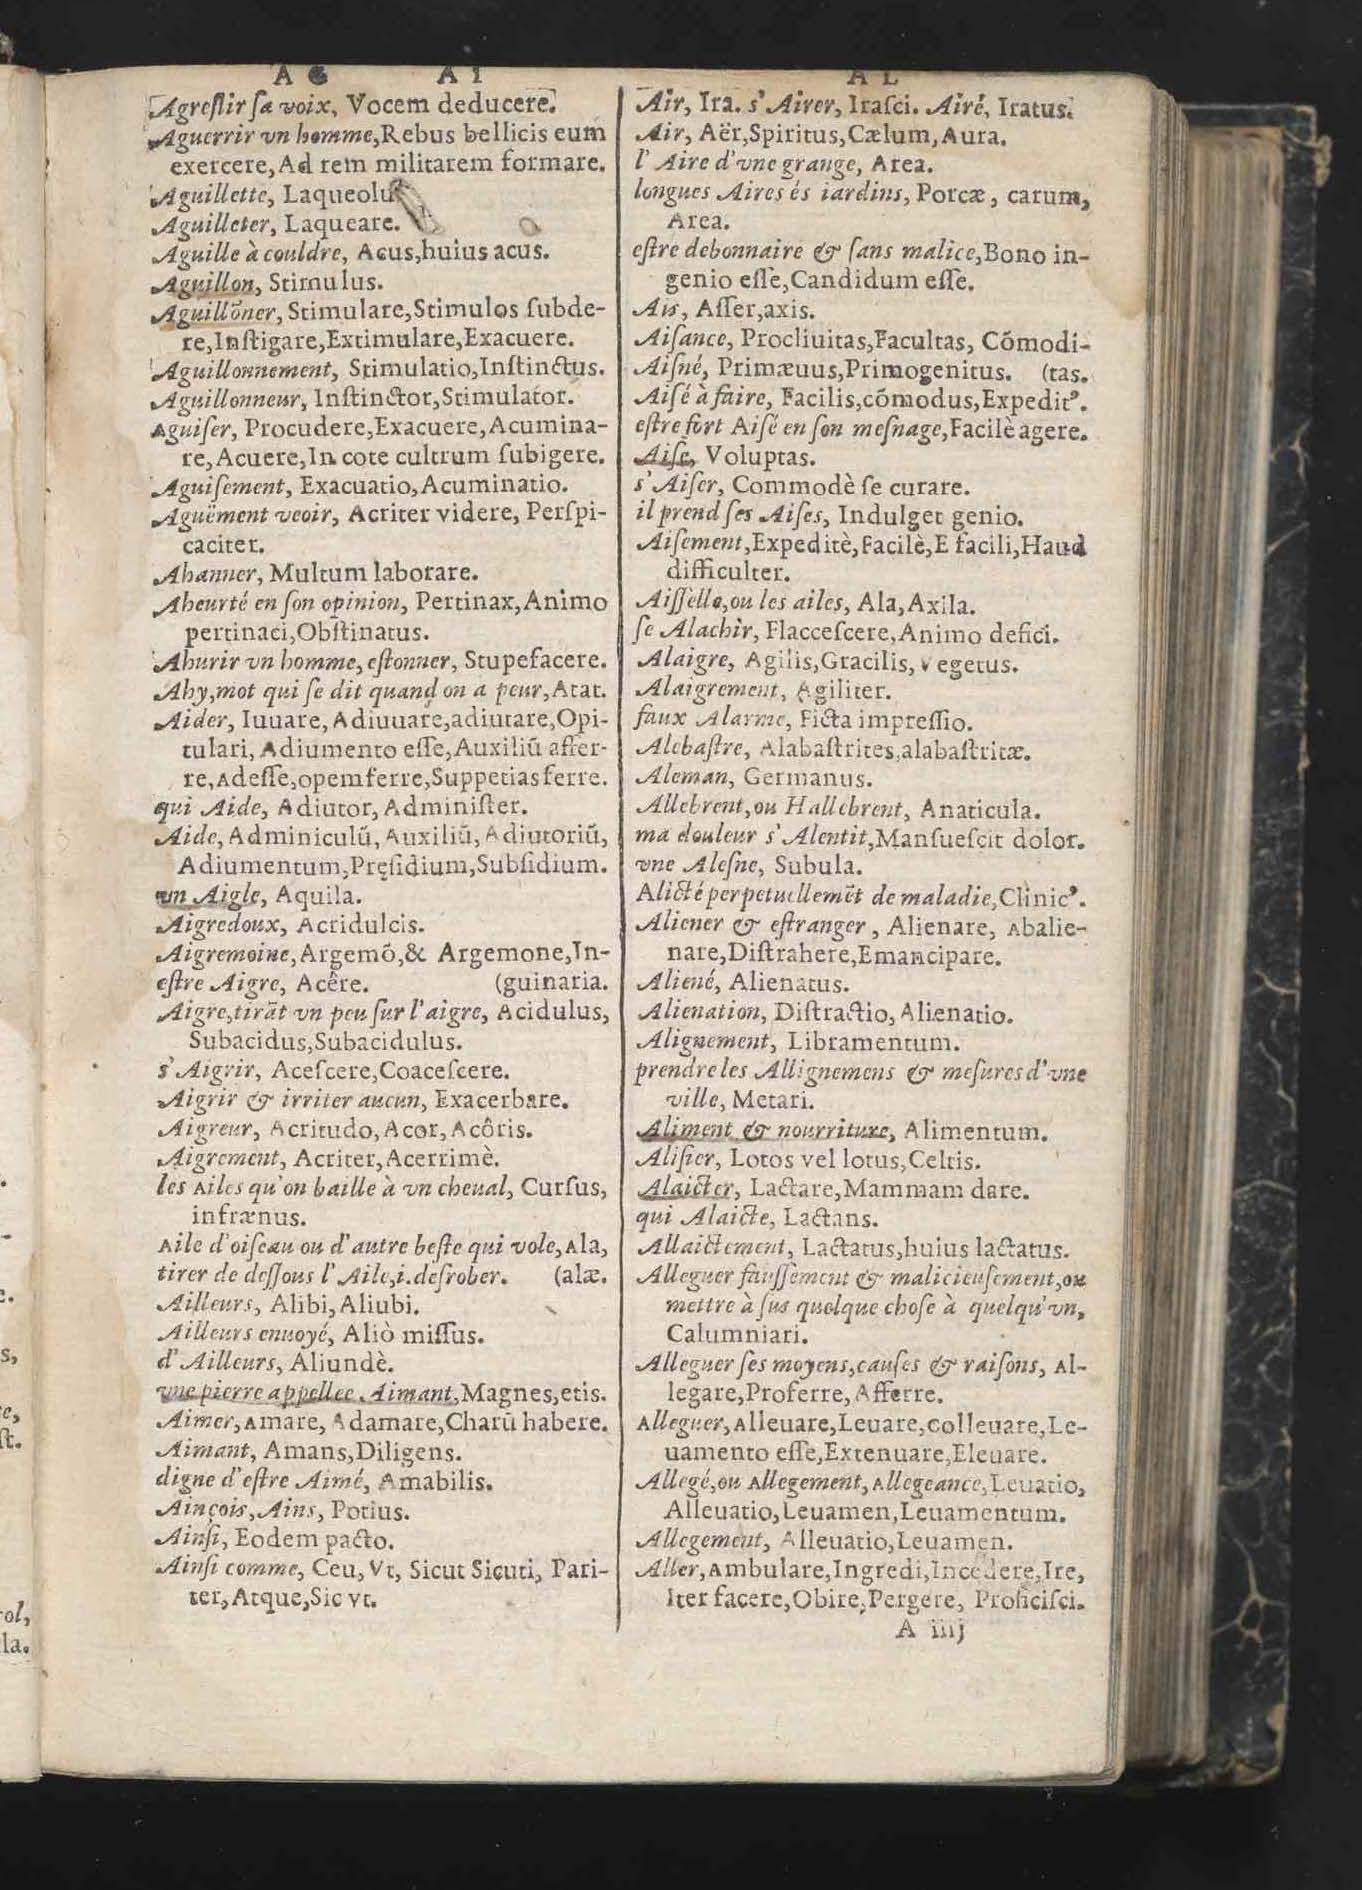 A G A I
Agreſlir ſa voix, Vocem deducere.
Aguerrir vn homme,Rebus bellicis eum
exercere,Ad rem militarem formare.
Aguillette, Laqueolus
Aguilleter, Laqueare.
Aguille à couldre, Acus,huius acus.
Aguillon, Stimulus.
Aguillõner, Stimulare,Stimulos ſubde-
re,Inſtigare,Extimulare,Exacuere.
Aguillonnement, Stimulatio,Inſtinctus.
Aguillonneur, Inſtinctor,Stimulator.
Aguiſer, Procudere,Exacuere,Acumina-
re,Acuere,In cote cultrum ſubigere.
Aguiſement, Exacuatio,Acuminatio.
Aguëment veoir, Acriter videre, Perſpi-
caciter.
Ahanner, Multum laborare.
Aheurté en ſon opinion, Pertinax,Animo
pertinaci,Obſtinatus.
Ahurir vn homme,eſtonner, Stupefacere.
Ahy,mot qui ſe dit quand on a peur,Atat.
Aider, Iuuare,Adiuuare,adiutare,Opi-
tulari,Adiumento eſſe,Auxiliũ affer-
re,Adeſſe,opemferre,Suppetias ferre.
qui Aide, Adiutor,Adminiſter.
Aide,Adminiculũ,Auxiliũ,Adiutoriũ,
Adiumentum,Pręſidium,Subſidium.
vn Aigle, Aquila.
Aigredoux, Acridulcis.
Aigremoine,Argemõ,& Argemone,In-
eſtre Aigre, Acêre. (guinaria.
Aigre,tirãt vn peu ſur l'aigre, Acidulus,
Subacidus,Subacidulus.
s'Aigrir, Aceſcere,Coaceſcere.
Aigrir & irriter aucun, Exacerbare.
Aigreur, Acritudo,Acor,Acôris.
Aigrement, Acriter,Acerrimè.
les Ailes qu'on baille à vn cheual, Curſus,
infrænus.
Aile d'oiſeau ou d'autre beſte qui vole,Ala,
tirer de deſſous l'Aile,i.deſrober. (alæ.
Ailleurs, Alibi,Aliubi.
Ailleurs enuoyé, Aliò miſſus.
d'Ailleurs, Aliundè.
vne pierre appellee Aimant,Magnes,etis.
Aimer,Amare, Adamare,Charũ habere.
Aimant, Amans,Diligens.
digne d'eſtre Aimé, Amabilis.
Ainçois,Ains, Potius.
Ainſi, Eodem pacto.
Ainſi comme, Ceu,Vt, Sicut Sicuti, Pari-
ter,Atque,Sic vt.
A L
Air, Ira. s'Airer, Iraſci. Airé, Iratus.
Air, Aër,Spiritus,Cælum,Aura.
l'Aire d'vne grange, Area.
longues Aires és iardins, Porcæ, carum,
Area.
eſtre debonnaire & ſans malice,Bono in-
genio eſſe,Candidum eſſe.
Ais, Aſſer,axis.
Aiſance, Procliuitas,Facultas, Cõmodi-
Aiſné, Primæuus,Primogenitus. (tas.
Aiſé à faire, Facilis,cõmodus,Expeditꝰ.
eſtre fort Aiſé en ſon meſnage,Facilè agere.
Aiſe, Voluptas.
s'Aiſer, Commodè ſe curare.
il prend ſes Aiſes, Indulget genio.
Aiſement,Expeditè,Facilè,E facili,Haud
difficulter.
Aiſſelle,ou les ailes, Ala,Axila.
ſe Alachir, Flacceſcere,Animo defici.
Alaigre, Agilis,Gracilis,Vegetus.
Alaigrement, Agiliter.
faux Alarme, Ficta impreſſio.
Alebaſtre, Alabaſtrites,alabaſtritæ.
Aleman, Germanus.
Allebrent,ou Hallebrent, Anaticula.
ma douleur s'Alentit,Manſueſcit dolor.
vne Aleſne, Subula.
Alicté perpetuellemẽt de maladie,Clinicꝰ.
Aliener & eſtranger, Alienare, Abalie-
nare,Diſtrahere,Emancipare.
Aliené, Alienatus.
Alienation, Diſtractio,Alienatio.
Alignement, Libramentum.
prendre les Allignemens & meſures d'vne
ville, Metari.
Aliment & nourriture, Alimentum.
Aliſier, Lotos vel lotus,Celtis.
Alaicter, Lactare,Mammam dare.
qui Alaicte, Lactans.
Allaictement, Lactatus,huius lactatus.
Alleguer fauſſement & malicieuſement,ou
mettre à ſus quelque choſe à quelqu'vn,
Calumniari.
Alleguer ſes moyens,cauſes & raiſons, Al-
legare,Proferre,Afferre.
Alleguer,Alleuare,Leuare,colleuare,Le-
uamento eſſe,Extenuare,Eleuare.
Allegé,ou Allegement,Allegeance,Leuatio,
Alleuatio,Leuamen,Leuamentum.
Allegement, Alleuatio,Leuamen.
Aller,Ambulare,Ingredi,Incedere,Ire,
Iter facere,Obire,Pergere, Proficiſci.
A iiij